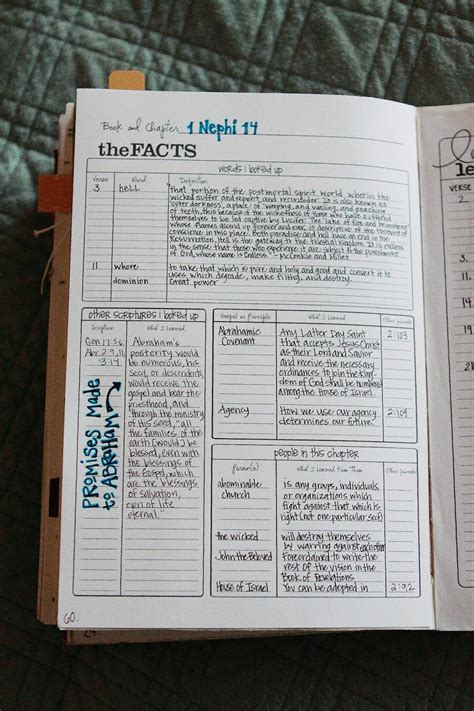 Book and Chapter 1 Nephi 14
the FACTS
words I looked up
Verse Word Definition
3 hell that portion of the postmortal spirit world, wherein the
wicked suffer and repent, and reconsider. It is also known as
"outer darkness", a place of "weeping, and wailing, and gnashing
of teeth, this because of the wickedness of those who have suffered
themselves to be led captive by Lucifer. The "lake of fire and brimstone
whose flames ascend up forever and ever is descriptive of the torment of
conscience in this place. Both paradise and hell have an end in the
Resurrection. Hell is the gateway to the telestial kingdom. It is endless
in the sense that those who experience it are subject to the punishment
of God, whose name is Endless." - McConkie and Millet
11 whore to take that which is pure and holy and good and convert it to
uses which degrade, make filthy, and destroy.
dominion Great power
other scriptures I looked up
Scripture What I Learned
Gen 17:5,6
Apr 2:9,11
3:14
Abraham's
posterity would
be numerous, his
seed, or descendents,
would receive the
gospel and bear the
priesthood, and
"through the ministry
of his seed, "all
the families of the
earth [would] be
blessed, even with
the blessings of
the Gospel, which
are the blessings
of salvation,
even of life
eternal."
PROMISES Made
to ABRAHAM
Gospel or Principle What I Learned Other journals
Abrahamic
Covenant
Any Latter Day Saint 2:103
that accepts Jesus Christ
as their Lord and Savior
and receive the necessary
ordinances to join the king-
dom of God shall be numbered
among the House of Israel.
Agency How we use our agency 2:79
determines our future.
people in this chapter
Person(s) What I Learned From Them Other journals
abominable
church
is any groups, individuals,
or organizations which
fight against that which is
right (not one particular sect)
the wicked will destroy themselves
by warring against each other
John the Beloved Foreordained to write the
rest of the vision in the
Book of Revelations
House of Israel You can be adopted in 2:92
60.
VERSE
2.